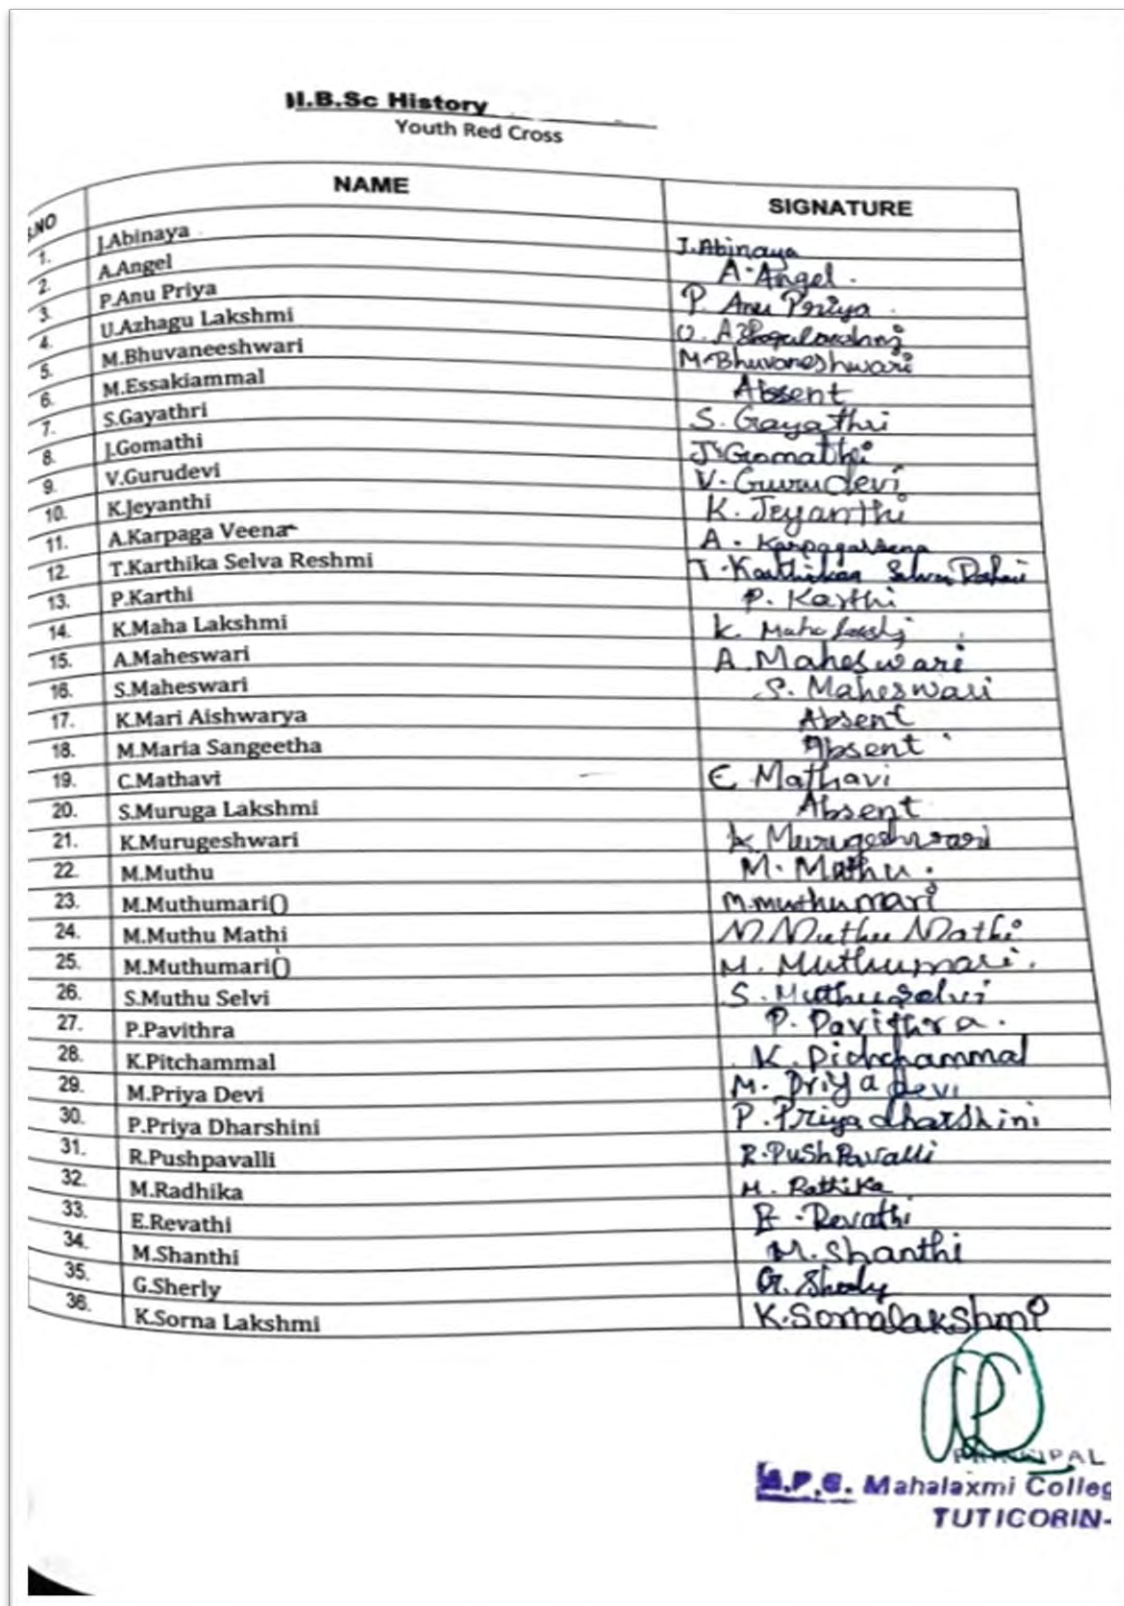 II.B.Sc History
Youth Red Cross
S.NO NAME SIGNATURE
1. J.Abinaya J.Abinaya
2. A.Angel A.Angel.
3. P.Anu Priya P. Anu Priya.
4. U.Azhagu Lakshmi U.
5. M.Bhuvaneeshwari M.Bhuvaneshwari
6. M.Essakiammal Absent
7. S.Gayathri S. Gayathri
8. J.Gomathi J.Gomathi
9. V.Gurudevi V. Gurudevi
10. K.Jeyanthi K. Jeyanthi
11. A.Karpaga Veena A. Karpagaveena
12. T.Karthika Selva Reshmi T.
13. P.Karthi P. Karthi
14. K.Maha Lakshmi K. Maha
15. A.Maheswari A. Maheswari
16. S.Maheswari S. Maheswari
17. K.Mari Aishwarya Absent
18. M.Maria Sangeetha Absent
19. C.Mathavi C Mathavi
20. S.Muruga Lakshmi Absent
21. K.Murugeshwari K. Murugeshwari
22. M.Muthu M. Mathu.
23. M.Muthumari() M.muthumari
24. M.Muthu Mathi M.Muthu Mathi
25. M.Muthumari() M. Muthumari.
26. S.Muthu Selvi S. Muthuselvi
27. P.Pavithra P. Pavithra.
28. K.Pitchammal K. Pichchammal
29. M.Priya Devi M. Priya devi
30. P.Priya Dharshini P. Priya dharshini
31. R.Pushpavalli R.PushPavalli
32. M.Radhika M. Rathika
33. E.Revathi E.Revathi
34. M.Shanthi M. Shanthi
35. G.Sherly G. Sherly
36. K.Sorna Lakshmi K.Sornalakshmi
PRINCIPAL
A.P.C. Mahalaxmi Colleg
TUTICORIN-